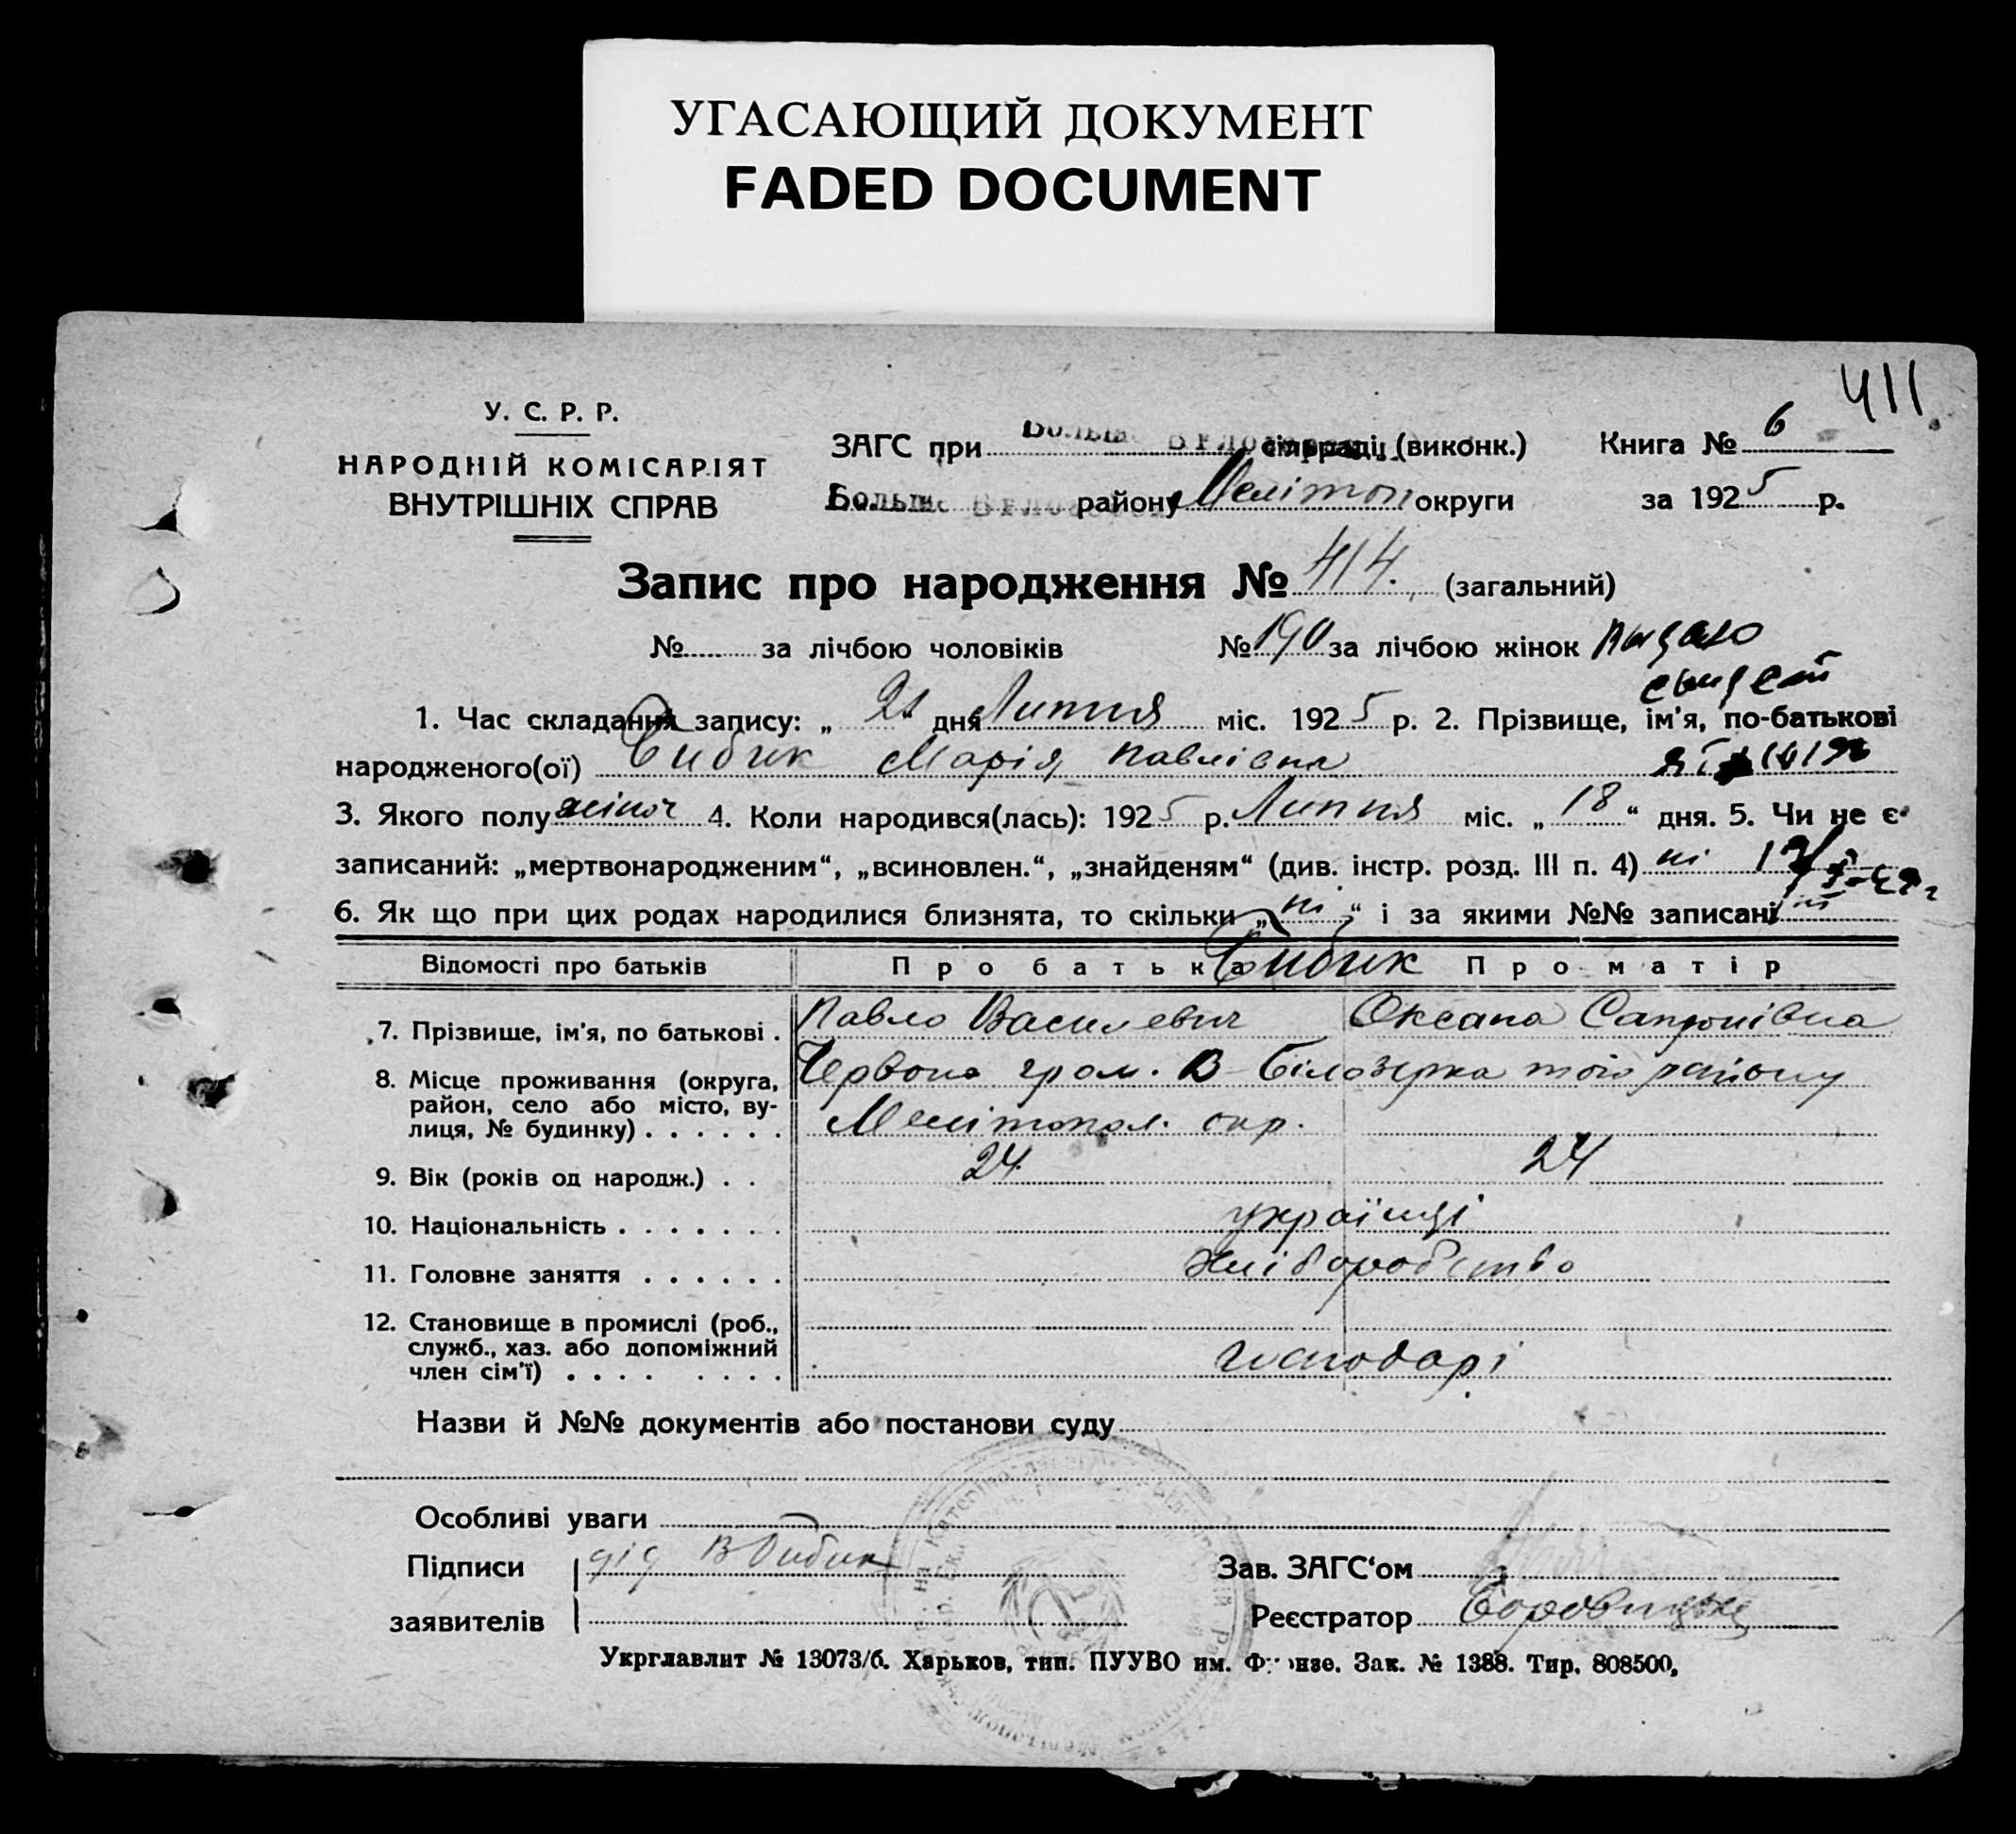 УГАСАЮЩИЙ ДОКУМЕНТ
FADED DOCUMENT
411
У. С. Р. Р.
НАРОДНІЙ КОМІСАРІЯТ
ВНУТРІШНІХ СПРАВ
ЗАГС при сільраді (виконк.)
району Мелітоп округи
Книга № 6
за 1925 р.
Запис про народження № 414. (загальний)
№ за лічбою чоловіків № 190 за лічбою жінок
1. Час складання запису: „ 21 “ дня Липня міс. 1925 р. 2. Прізвище, ім'я, по-батькові
народженого(ої) Бибик Марія Павлівна
3. Якого полу жіноч 4. Коли народився(лась): 1925 р. Липня міс. „ 18 “ дня. 5. Чи не є
записаний: „мертвонародженим“, „всиновлен.“, „знайденям“ (див. інстр. розд. III п. 4) ні
6. Як що при цих родах народилися близнята, то скільки „ ні “ і за якими №№ записані ні
Відомості про батьків Про батька Бибик Про матір
7. Прізвище, ім'я, по батькові . Павло Василевич Оксана Сапронівна
8. Місце проживання (округа, Червона гром. В-Білозерка того району
район, село або місто, ву-
лиця, № будинку) . . . . . . Мелітопол. окр.
9. Вік (років од народж.) . . 24 24
10. Національність . . . . . . . українці
11. Головне заняття . . . . . . Хліборобство
12. Становище в промислі (роб.,
служб., хаз. або допоміжний
член сім'ї) . . . . . . . . господарі
Назви й №№ документів або постанови суду
Особливі уваги
Підписи дід В Бибик
заявителів
Зав. ЗАГС‘ом
Реєстратор
Укрглавлит № 13073/б. Харьков, тип. ПУУВО им. Фрунзе. Зак. № 1388. Тир. 808500,